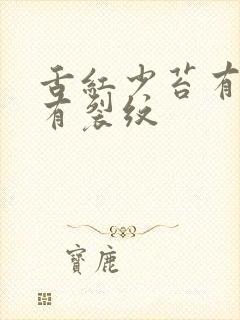 舌紅少苔有
有裂纹
寶鹿